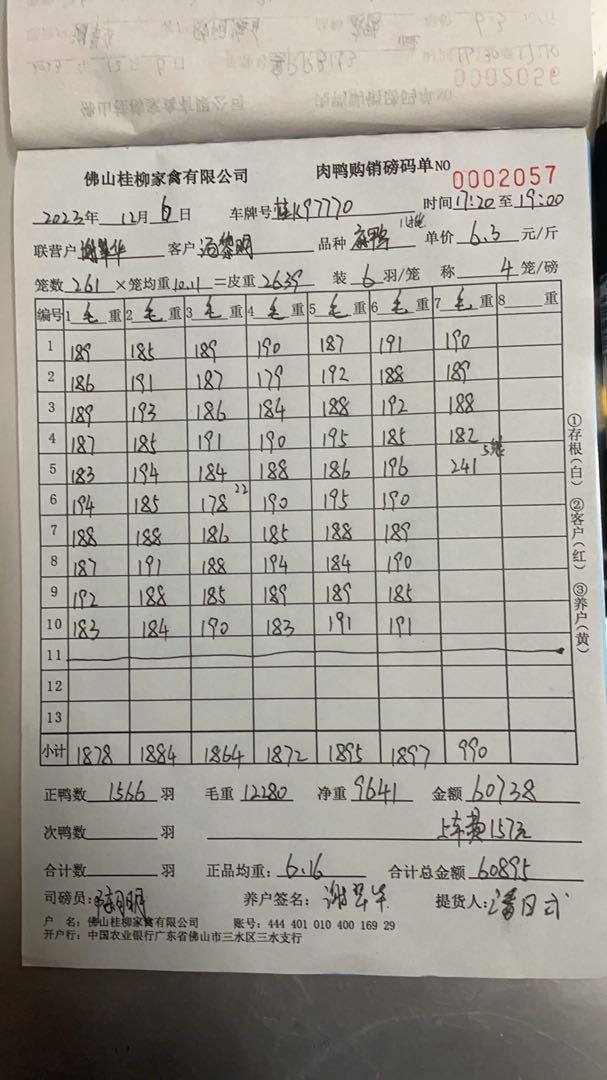 0002056
佛山桂柳家禽有限公司 肉鸭购销磅码单NO 0002057
2023年 12月 6日 车牌号 桂K97770 时间 17:20 至 19:00
联营户 谢翠华 客户 汤黎明 品种 麻鸭 单价 6.3 元/斤
笼数 261 ×笼均重 10.11 =皮重 2639 装 6 羽/笼 称 4 笼/磅
编号 1 毛 重 2 毛 重 3 毛 重 4 毛 重 5 毛 重 6 毛 重 7 毛 重 8 重
1 189 185 189 190 187 191 190
2 186 191 187 179 192 188 189
3 189 193 186 184 188 192 188
4 187 185 191 190 195 185 182
5 183 194 184 188 186 196 241 5笼
6 194 185 178 22 190 195 190
7 188 188 186 185 188 189
8 187 191 188 194 184 190
9 192 188 185 189 189 185
10 183 184 190 183 191 191
11
12
13
小计 1878 1884 1864 1872 1895 1897 990
①存根(白) ②客户(红) ③养户(黄)
正鸭数 1566 羽 毛重 12280 净重 9641 金额 60738
次鸭数 羽 上车费157元
合计数 羽 正品均重: 6.16 合计总金额 60895
司磅员: 养户签名: 谢翠华 提货人: 潘日式
户 名: 佛山桂柳家禽有限公司 账号: 444 401 010 400 169 29
开户行: 中国农业银行广东省佛山市三水区三水支行